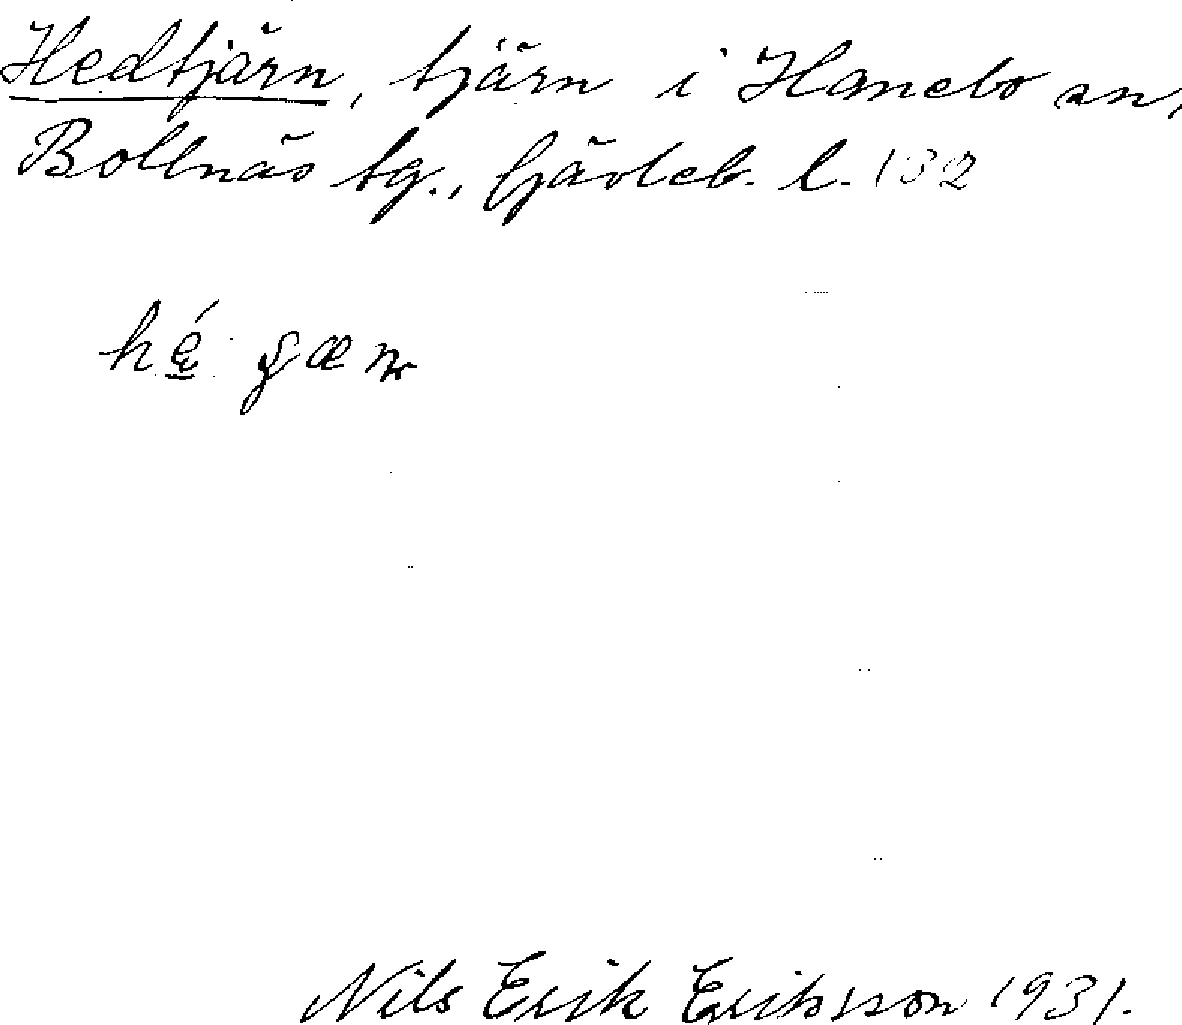 Hedtjärn, tjärn i Hanebo sn,
Bollnäs tg., Gävleb. l. 132
Nils Erik Eriksson 1931.